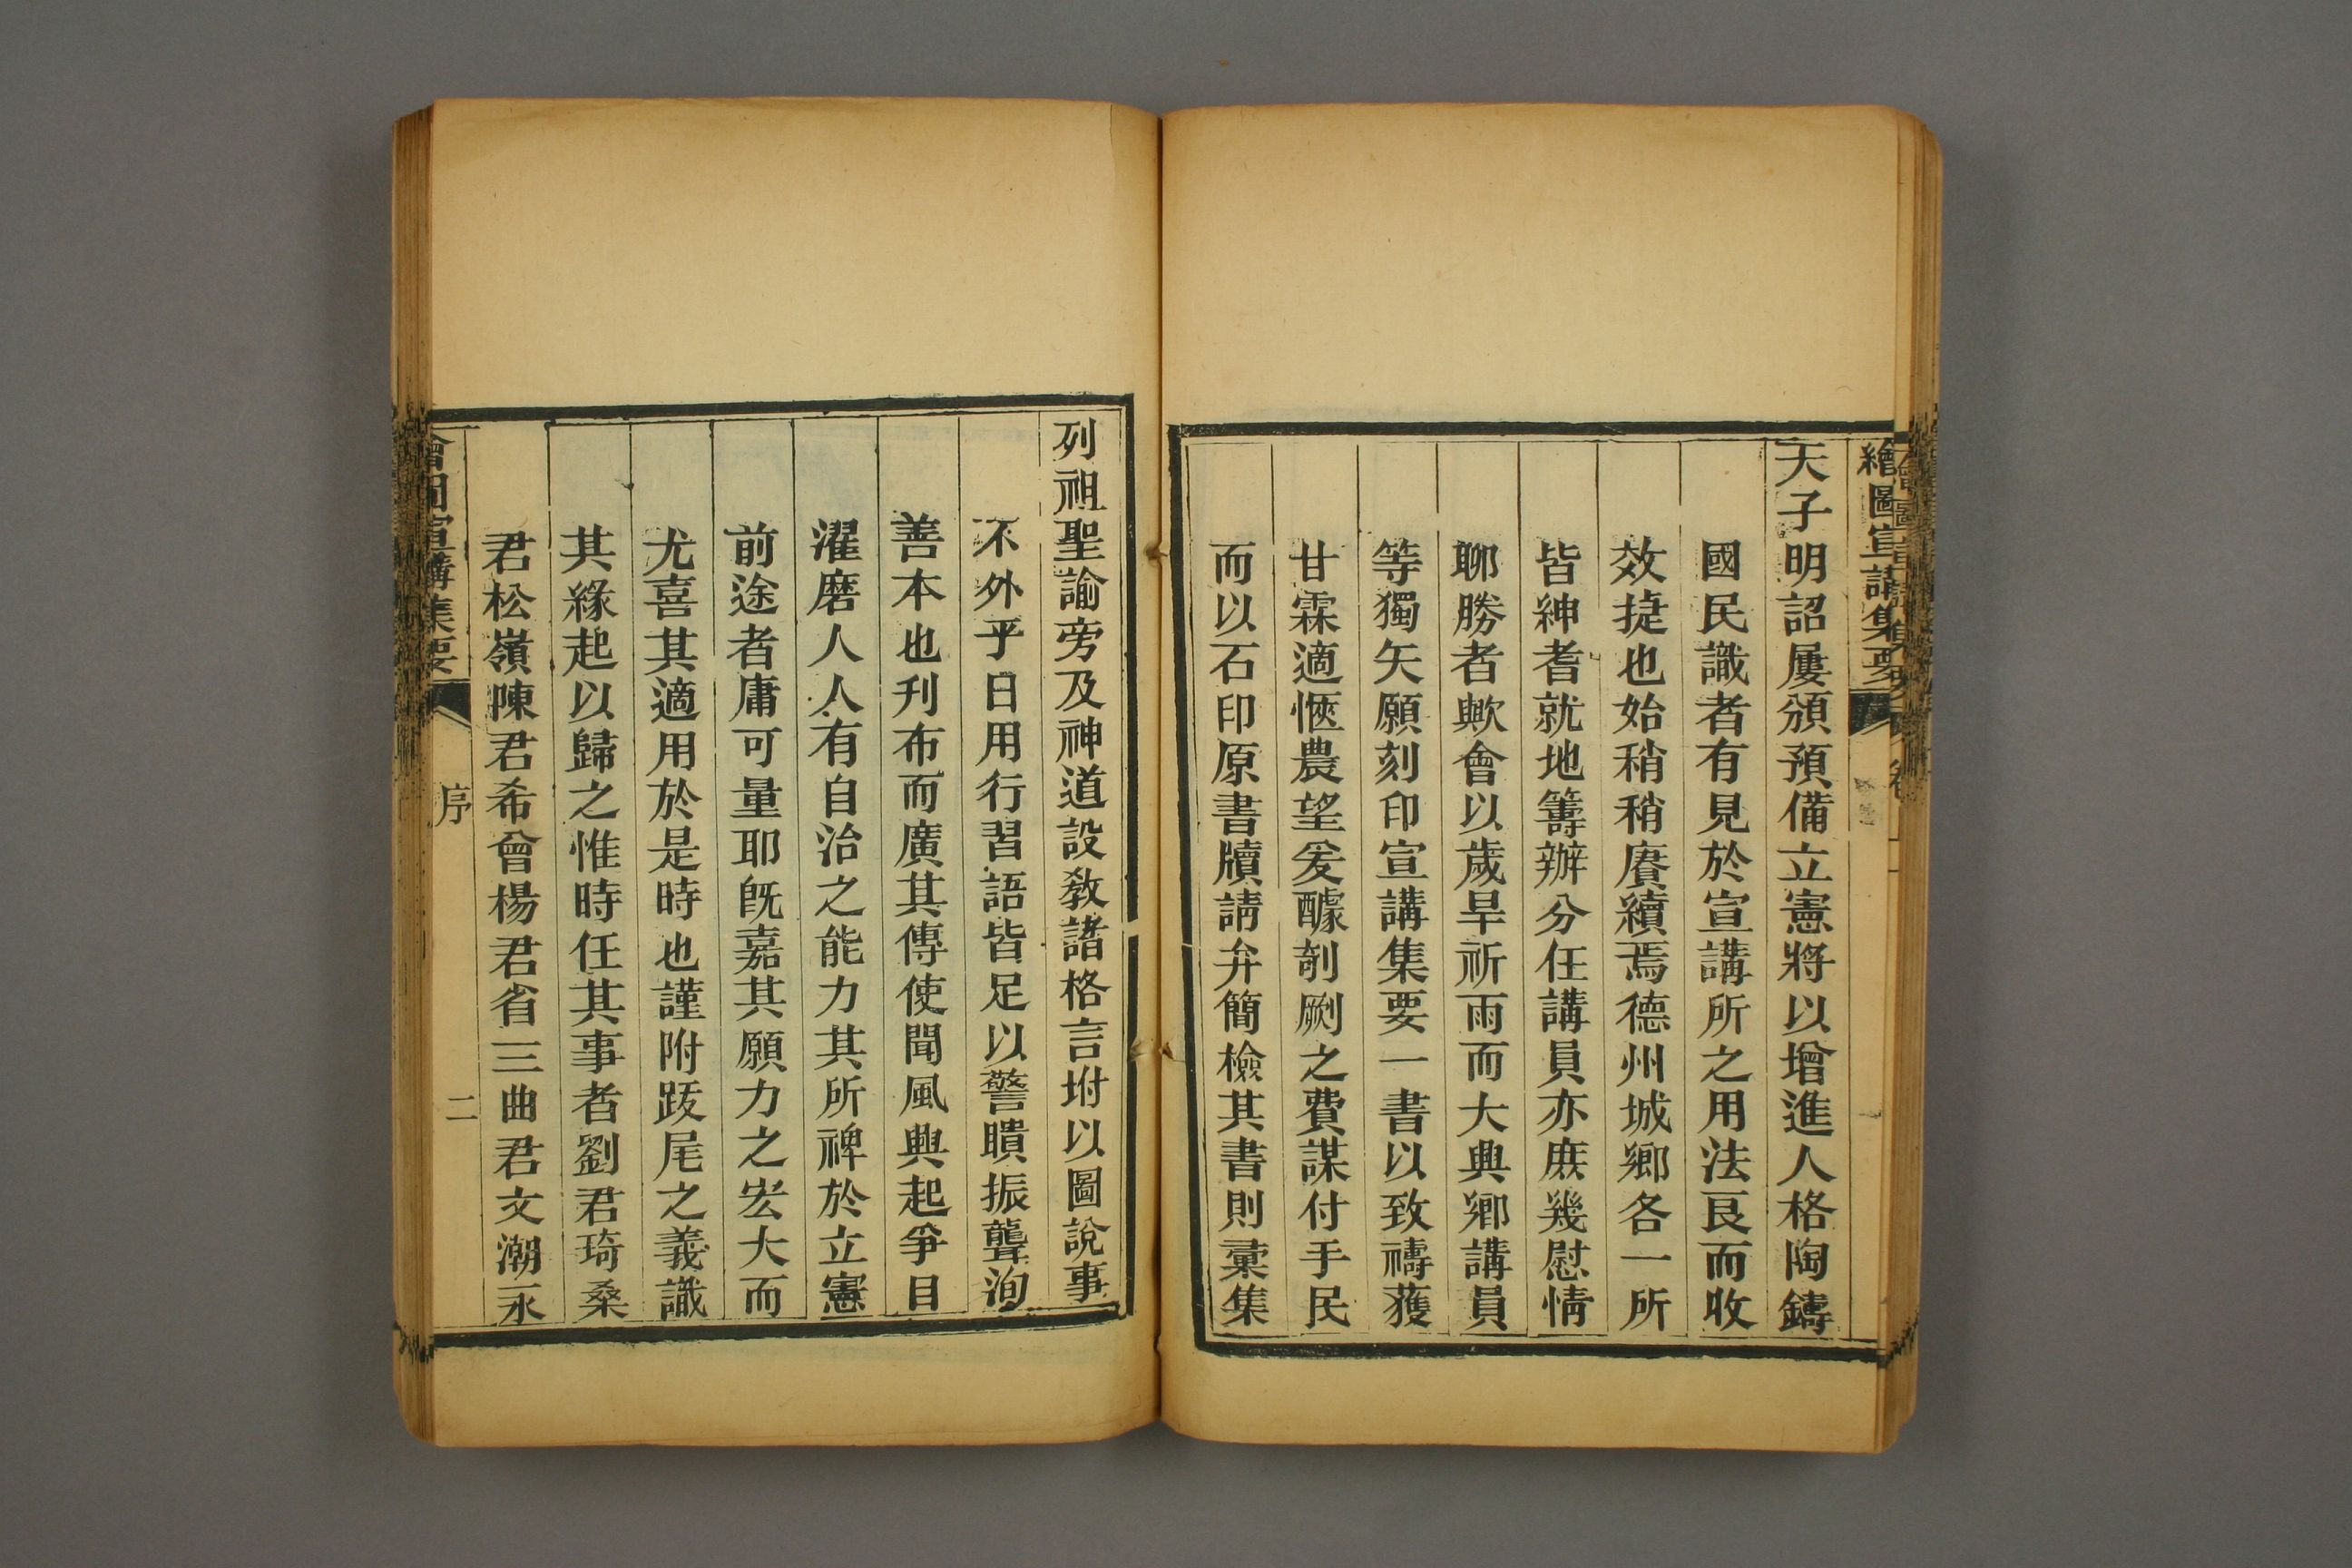 繪圖宣講集要
天子明詔屢頒預備立憲將以增進人格陶鑄
國民識者有見於宣講所之用法良而收
效捷也始稍稍賡續焉德州城鄉各一所
皆紳耆就地籌辦分任講員亦庶幾慰情
聊勝者歟會以歲旱祈雨而大興鄉講員
等獨矢願刻印宣講集要一書以致禱獲
甘霖適愜農望爰醵剞劂之費謀付手民
而以石印原書牘請弁簡檢其書則彙集
列祖聖諭旁及神道設敎諸格言坿以圖說事
不外乎日用行習語皆足以警聵振聾洵
善本也刋布而廣其傳使聞風興起爭自
濯磨人人有自治之能力其所裨於立憲
前途者庸可量耶旣嘉其願力之宏大而
尤喜其適用於是時也謹附跋尾之義識
其緣起以歸之惟時任其事者劉君琦桑
君松嶺陳君希曾楊君省三曲君文潮永
會圖宣講集要 序 二